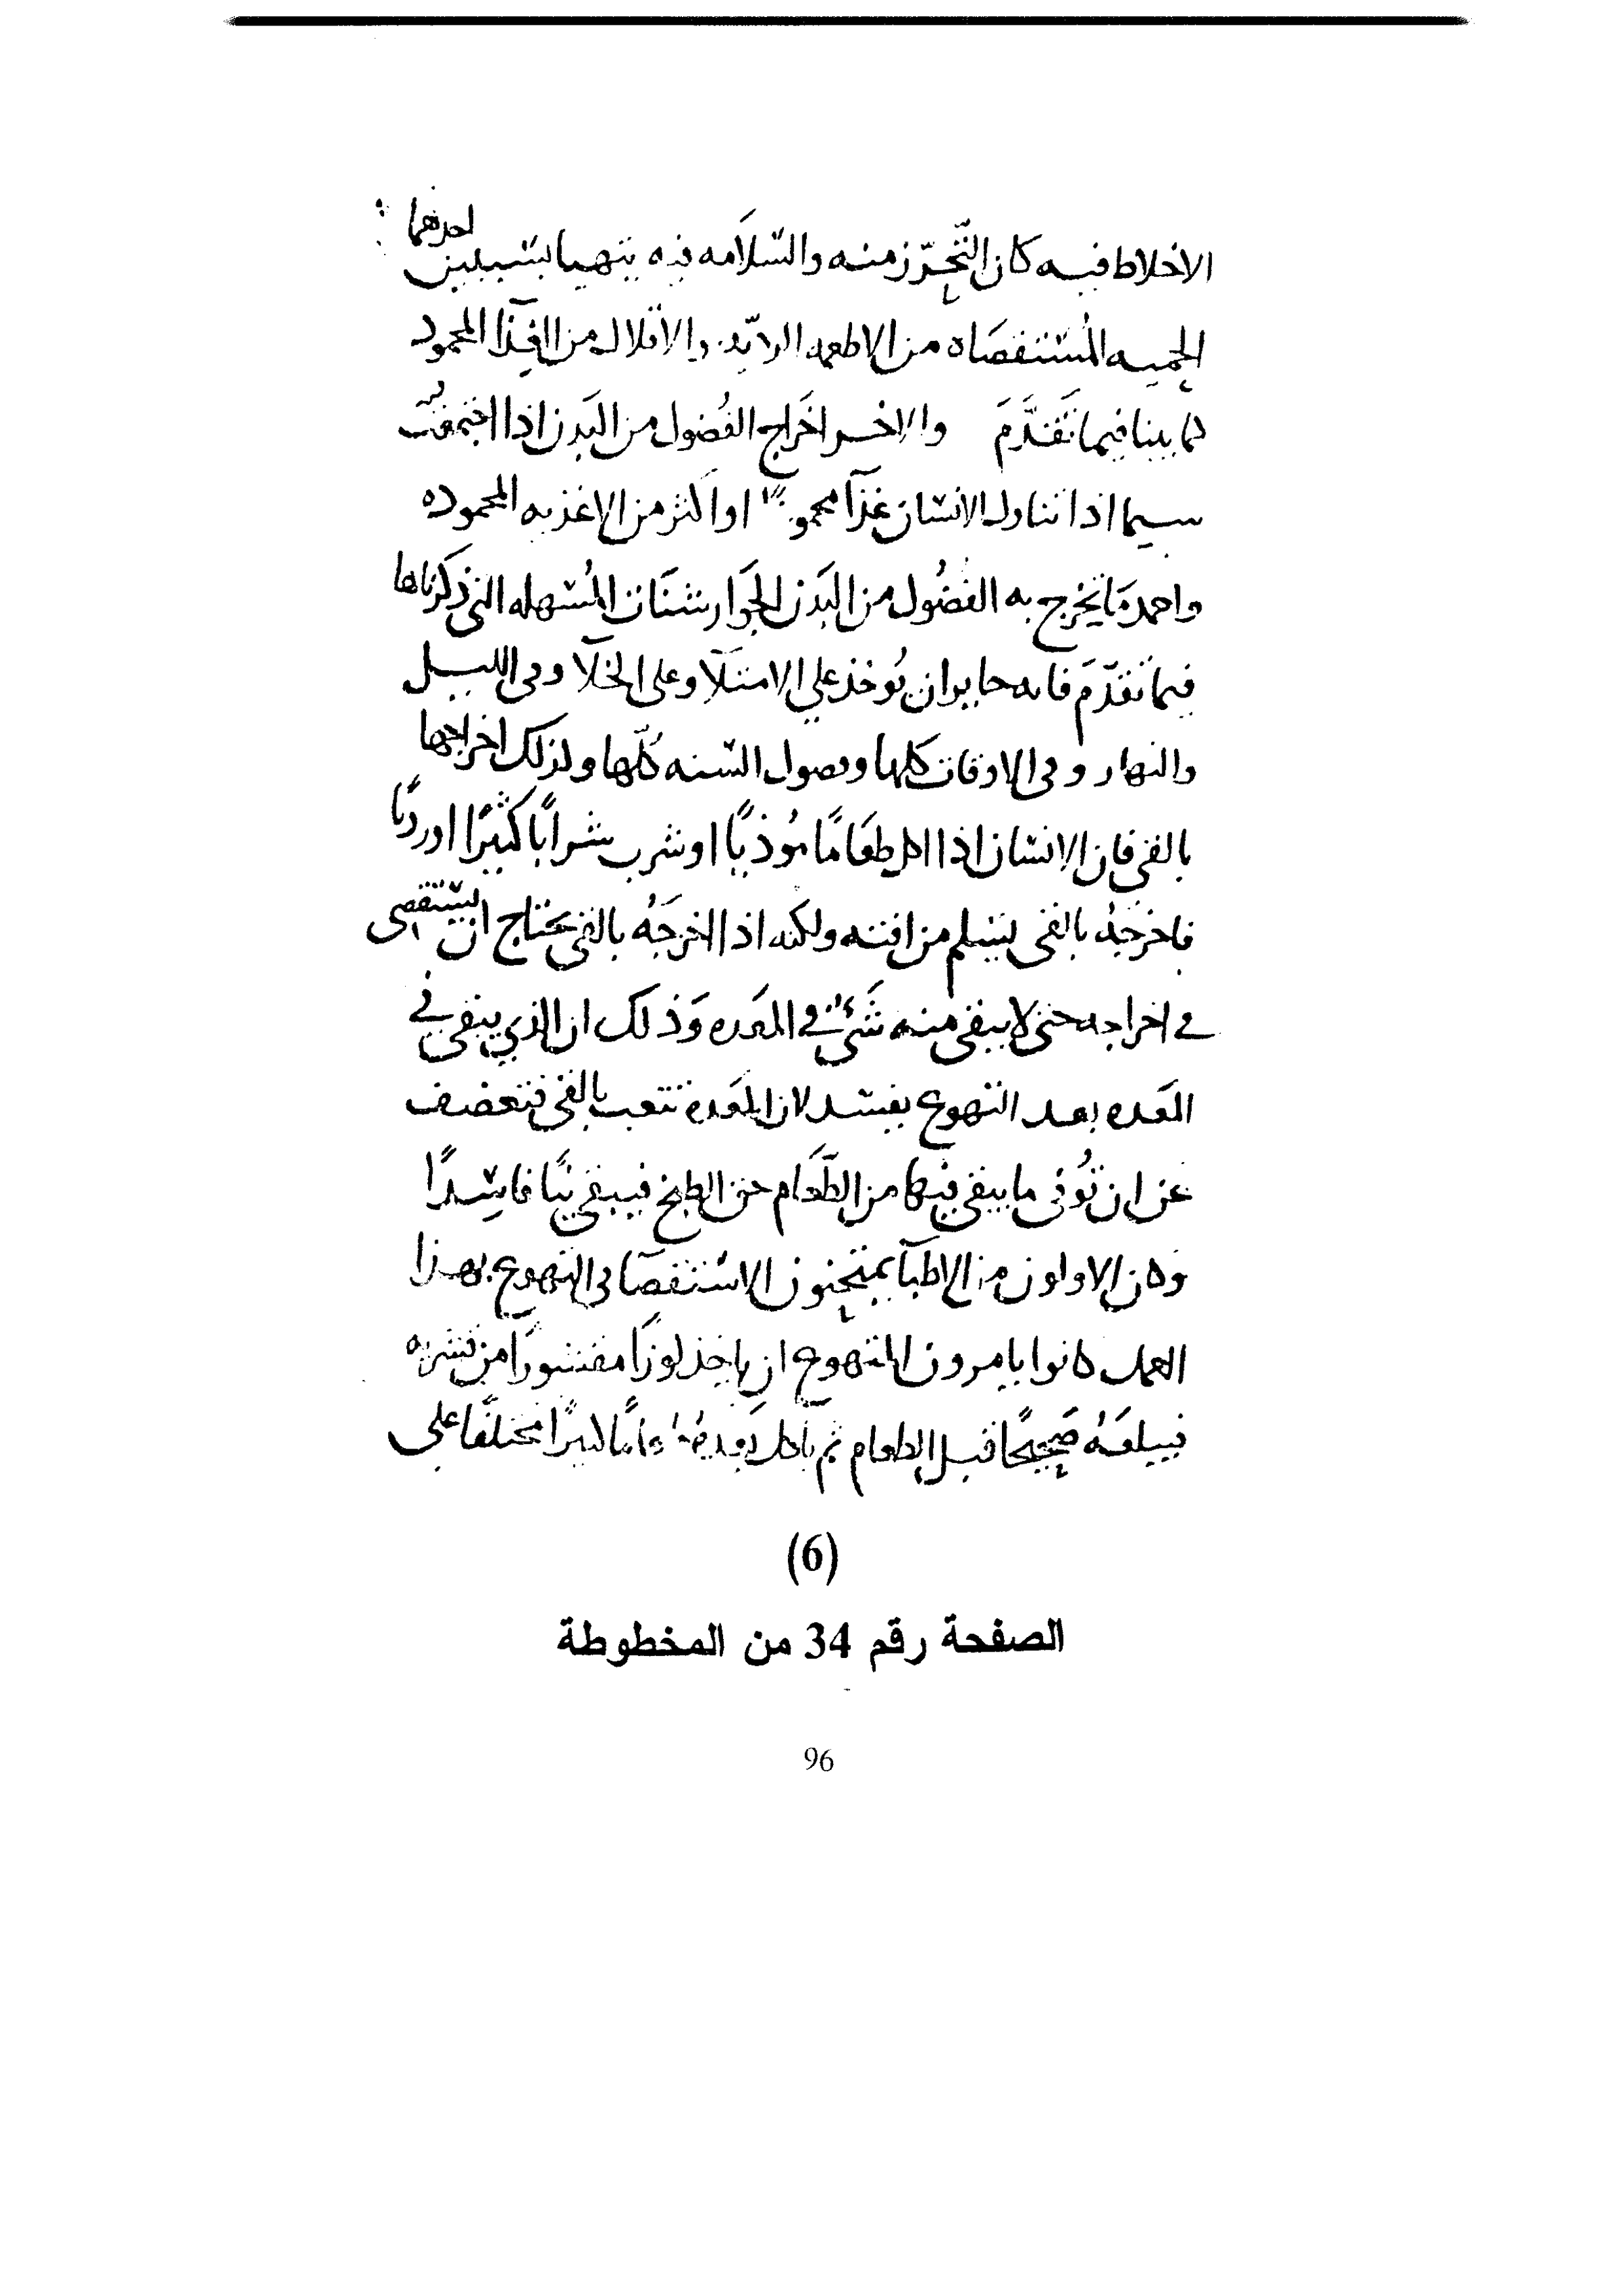 الاخلاط فيه كان التَّحَرّز منه والسّلامه فيه يتهيا بشيين احدهما
الحميه المُستقصاه من الاطعمه الرديّه والاقلال من الغِذآ المحمود
كما بينا فيما تَقَدَّمَ والاخر اخَراج الفُضول من البَدن اذا اجتمعَت
سيما اذا تناول الانسان غِذآ محمودًا او اكثر من الاغذيه المحموده
واحمد مَا يخرج به الفُضُول من البَدن الجَوارشنَات المُسهله التي ذكَرناها
فيما تقدّمَ فانه جايز ان يُوخذ علي الامتلآ وعلى الخَلآ وفي الليل
والنهار وفي الاوقات كلها وفصول السّنه كُلّها ولذلك اخراجها
بالقي فان الانسَان اذا اكل طعَامًا مُوذيًا او شرب شرابًا كثيرًا او رديًا
فاخرجهُ بالقى يَسلم من افته ولكنه اذا اخرجَهُ بالقى يحتاج ان يستقصى
في اخراجه حتى لا يبقى منه شَئٌ في المعَده وَذلك ان الذي يبقى في
المعَده بعد التهوع يفسد لان المعَده تتعب بالقى فتضعف
عن ان تُوفى ما يبقى فيها من الطَعَام حق الطبخ فيبقى نيًا فاسِدًا
وَكان الاولون من الاطبآ يمتحِنون الاستقصَا في التهوع بهذا
العمل كانوا يامرون المتهوع ان ياخذ لوزًا مقشورًا من قشرته
فيبلعَهُ صَحِيحًا قبل الطعام ثم ياكل بَعدهُ طعامًا كثيرًا مختلفًا على
(6)
الصفحة رقم 34 من المخطوطة
96